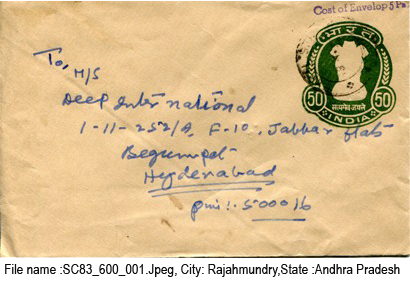 Cost of Envelop 5 Ps
भारत
सत्यमेव जयते
50 50
INDIA
To, M/S
Deep International
1-11-252/A, F-10, Jabbar flats
Begumpet
Hyderabad
pin:. 500016
File name :SC83_600_001.Jpeg, City: Rajahmundry,State :Andhra Pradesh